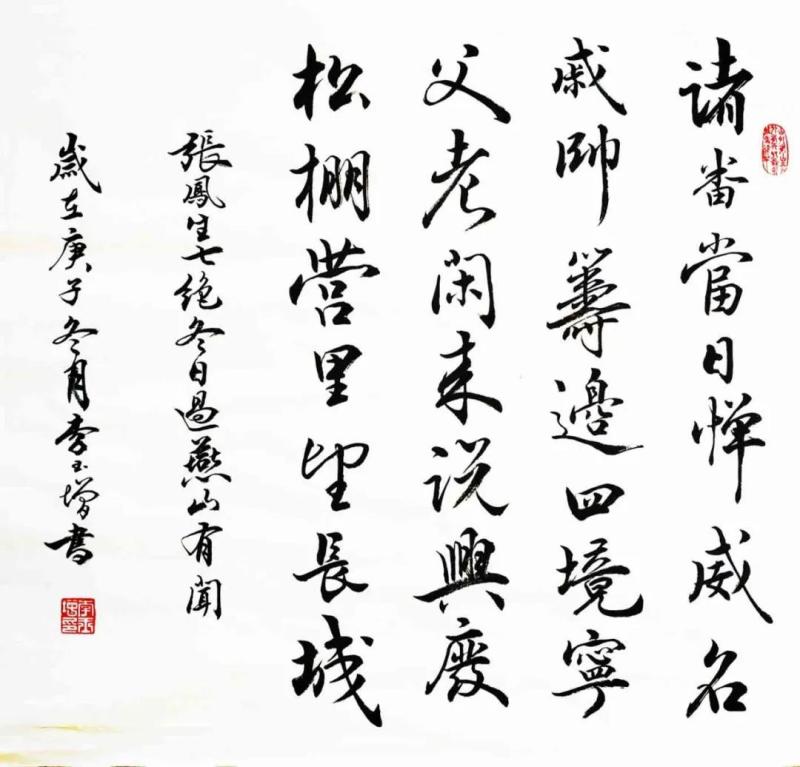 諸番當日惮威名
戚帥籌邊四境寧
父老閑来説興廢
松棚营里望長城
張鳳生七絶冬日過燕山有聞
歲在庚子冬月李玉增書